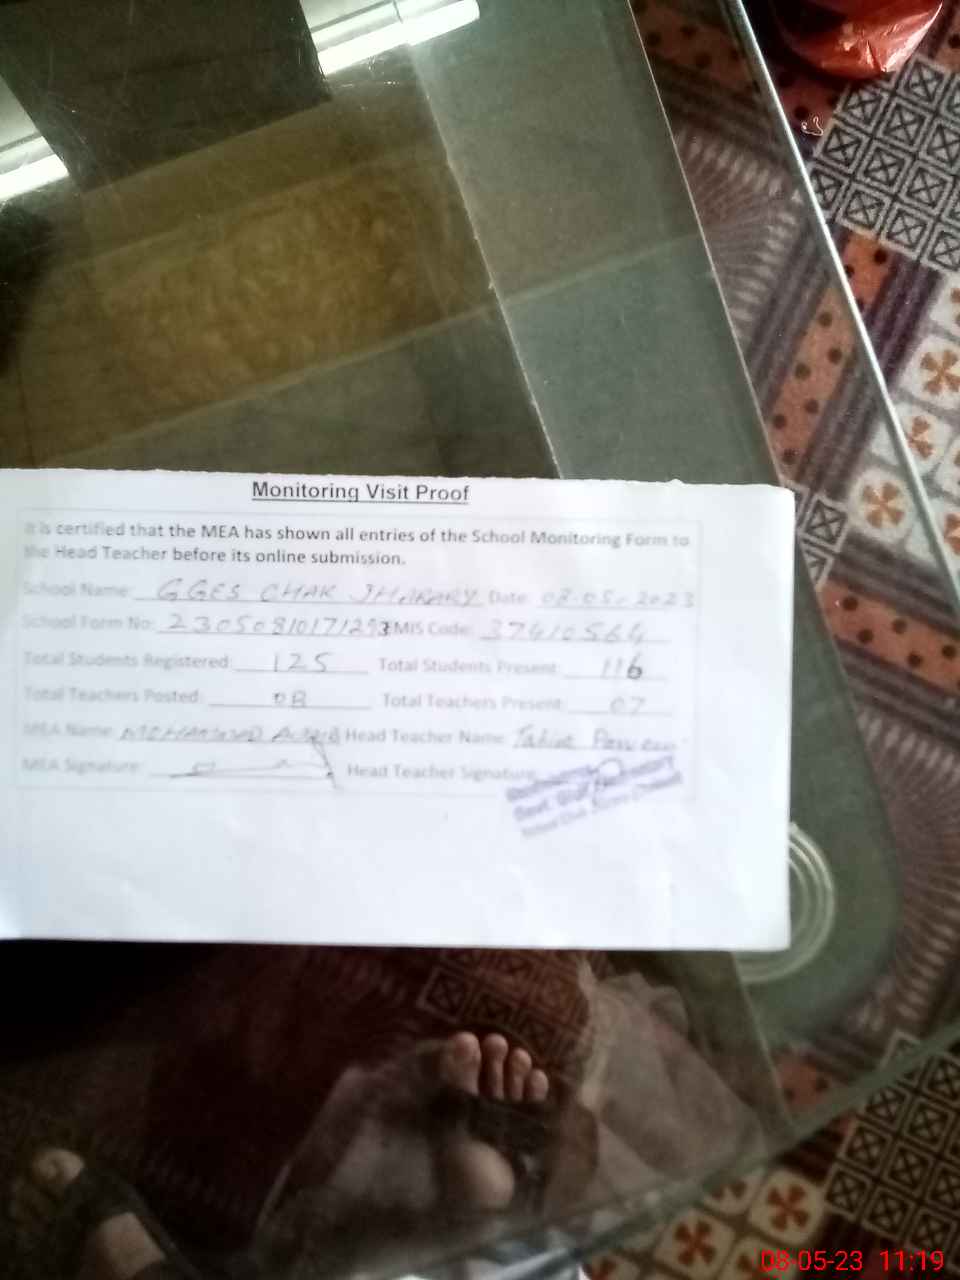 Monitoring Visit Proof
It is certified that the MEA has shown all entries of the School Monitoring Form to
the Head Teacher before its online submission.
School Name: GGES CHAK JHARARY Date: 08.05.2023
School Form No: EMIS Code: 37410564
Total Students Registered: 125 Total Students Present: 116
Total Teachers Posted: 08 Total Teachers Present: 07
MEA Name: MOHAMMAD Head Teacher Name:
MEA Signature: Head Teacher Signature:
08-05-23 11:19